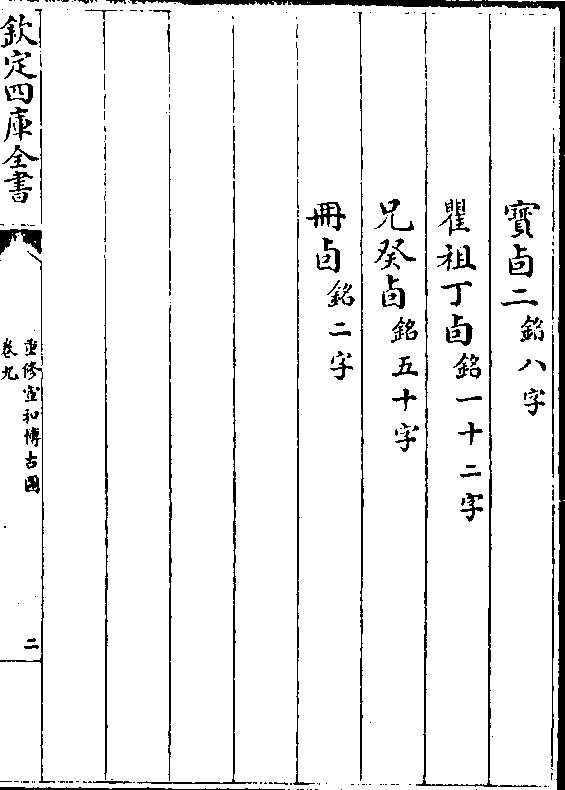 寳卣二銘八字
瞿祖丁卣銘一十二字
兄癸卣銘五十字
冊卣銘二字
欽定四庫全書
重修宣和博古圖
卷九
二